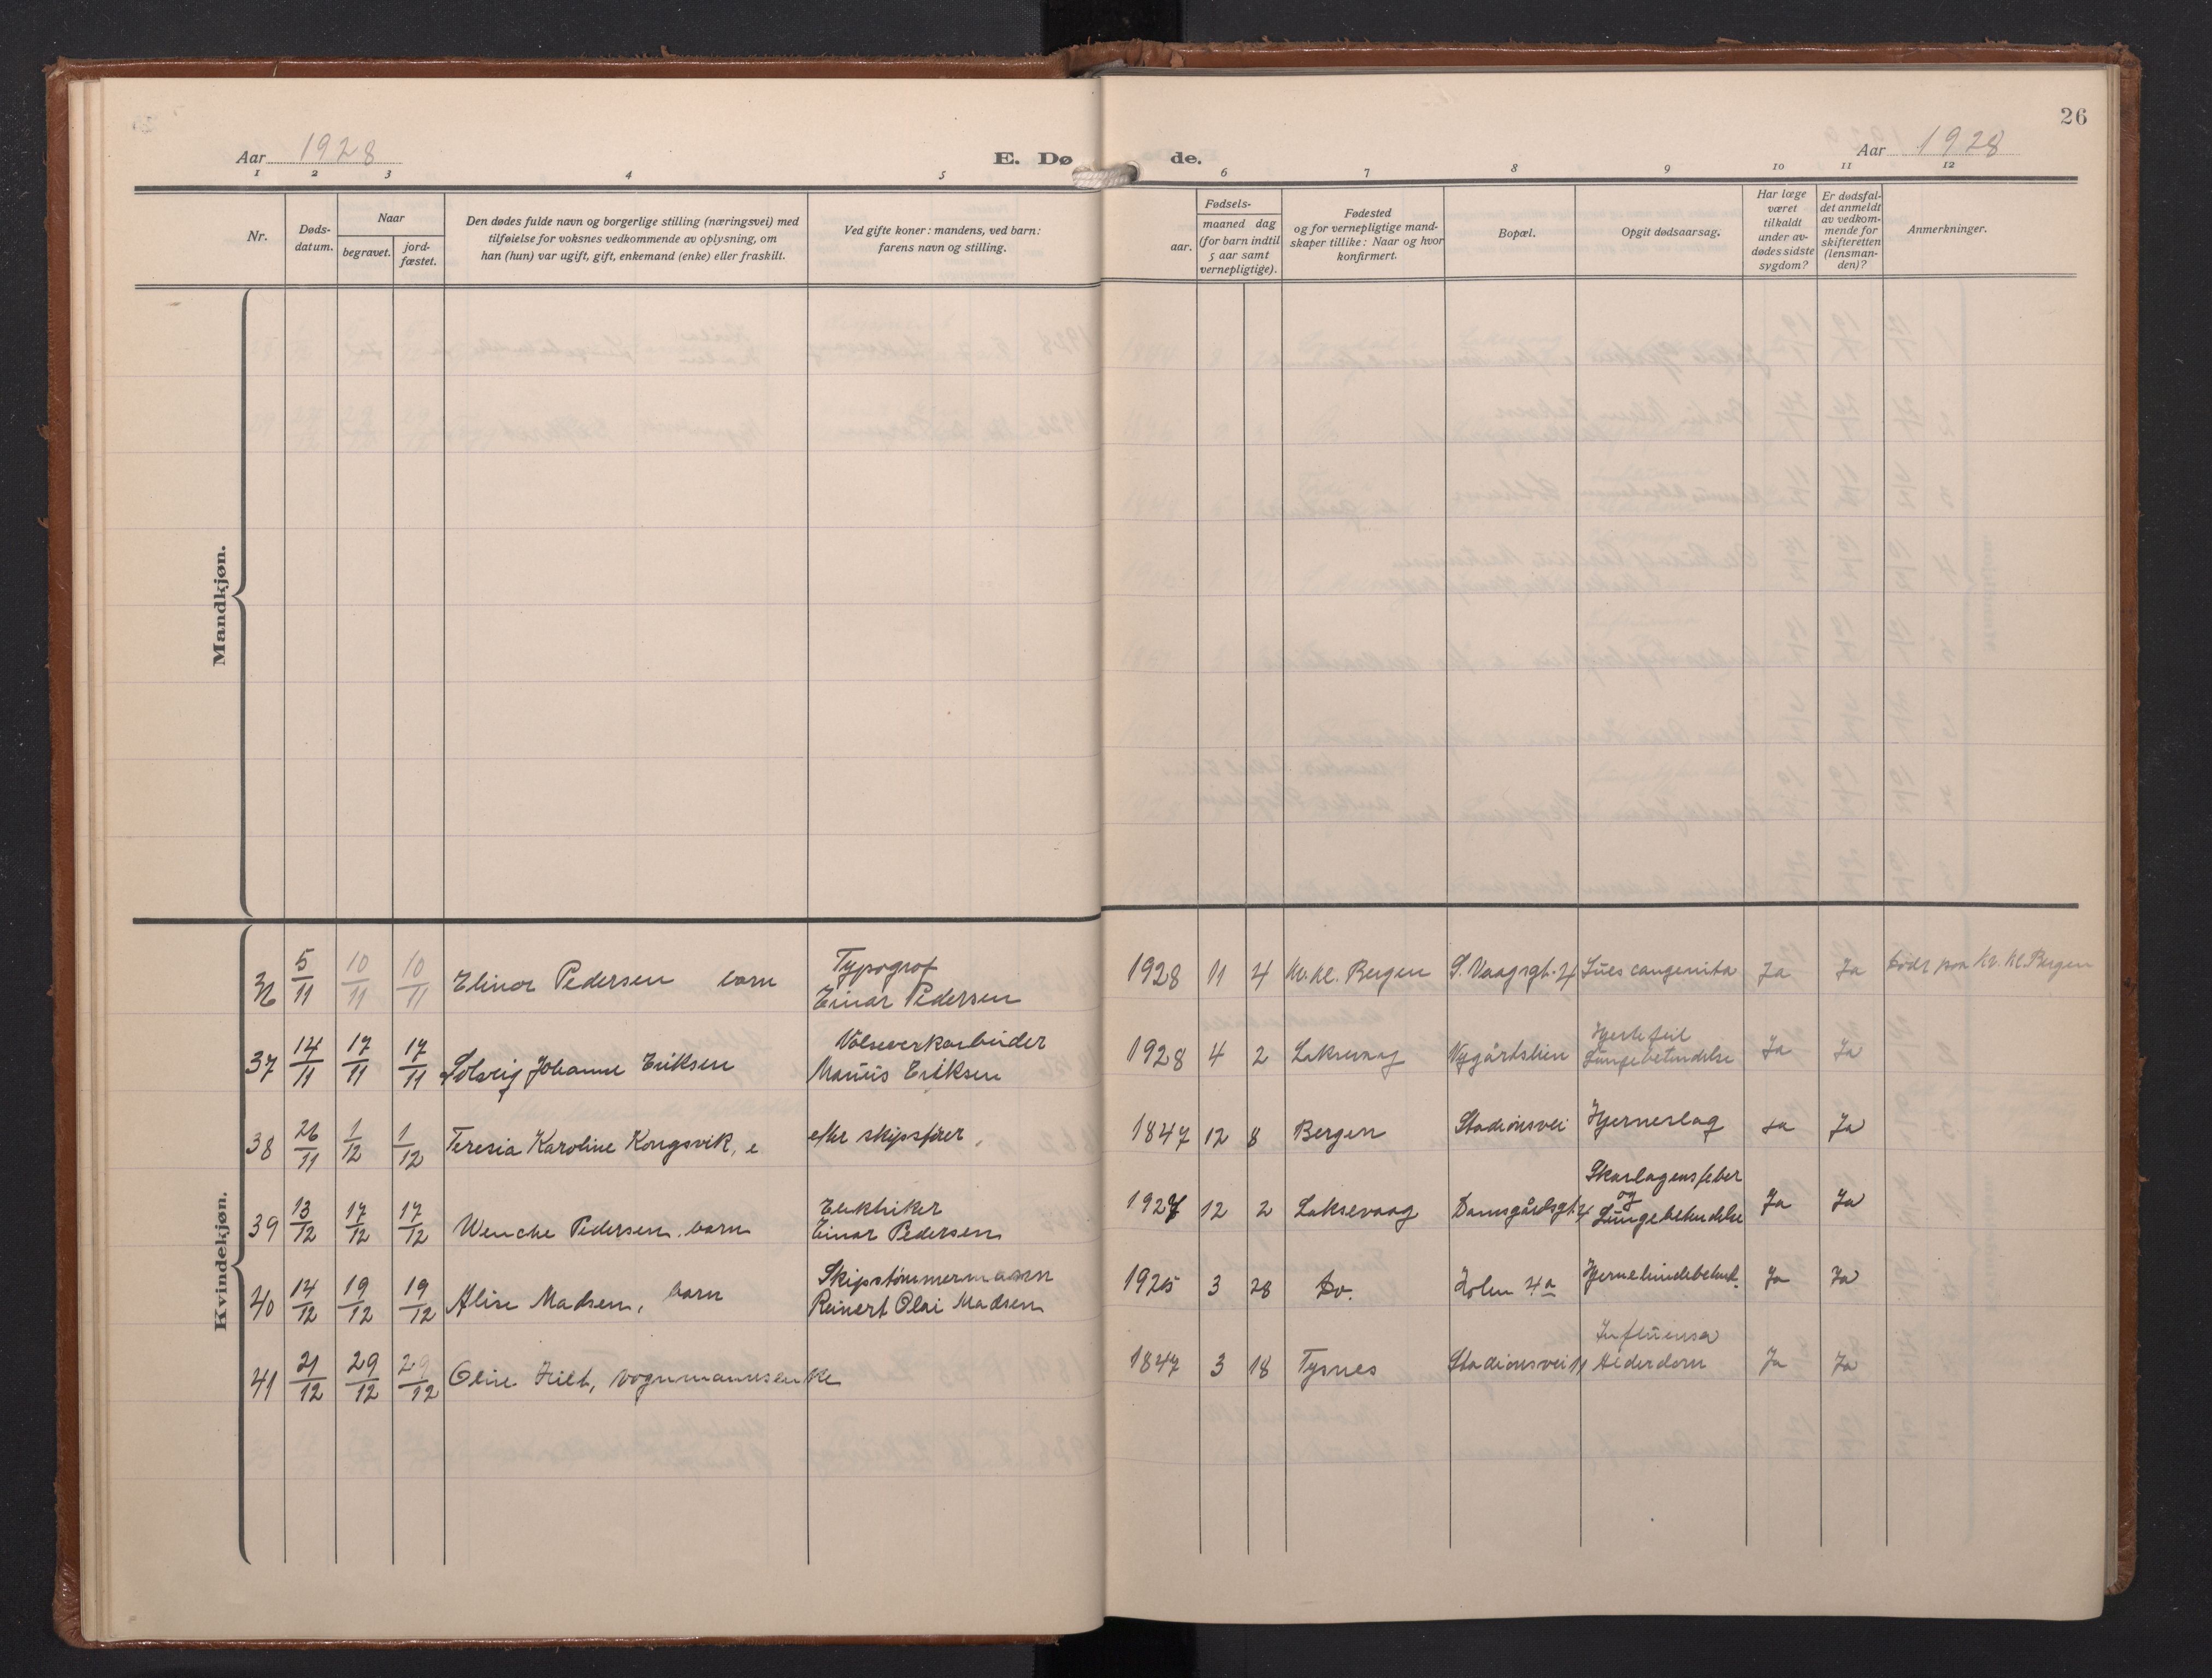 26
Aar 1928
E. Dø
de.
Aar 1928
1 2 3 4 5 6 7 8 9 10 11 12
Nr.
Døds-
datum.
Naar
begravet.
jord-
fæstet.
Den dødes fulde navn og borgerlige stilling (næringsvei) med
tilføielse for voksnes vedkommende av oplysning, om
han (hun) var ugift, gift, enkemand (enke) eller fraskilt.
Ved gifte koner: mandens, ved barn:
farens navn og stilling.
Fødsels-
aar.
maaned dag
(for barn indtil
5 aar samt
vernepligtige).
Fødested
og for vernepligtige mand-
skaper tillike: Naar og hvor
konfirmert.
Bopæl.
Opgit dødsaarsag.
Har læge
været
tilkaldt
under av-
dødes sidste
sygdom?
Er dødsfal-
det anmeldt
av vedkom-
mende for
skifteretten
(lensman-
den)?
Anmerkninger.
Mandkjøn.
Kvindekjøn.
36 5/11 10/11 10/11 Elinor Pedersen barn
Typograf
Einar Pedersen
1928 11 4 Kv. Kl. Bergen S. Vaagsgt. 4 Lues congenita Ja Ja Født paa Kv. Kl. Bergen
37 14/11 17/11 17/11 Solveig Johanne Eriksen
Valseverkarbeider
Marius Eriksen
1928 4 2 Laksevaag Nygårdslien
Hjertefeil
Lungebetendelse
Ja Ja
38 26/11 1/12 1/12 Teresia Karoline Kongsvik, e
efter skipsfører.
1847 12 8 Bergen Stadionsvei Hjerneslag Ja Ja
39 13/12 17/12 17/12 Wenche Pedersen. barn
Elektriker
Einar Pedersen
1927 12 2 Laksevaag Damsgårdsgt 4
Skarlagensfeber
og
Lungebetendelse
Ja Ja
40 14/12 19/12 19/12 Alise Madsen, barn
Skipstømmermann
Reinert Olai Madsen
1925 3 28 Do. Holen 4a Hjernehindebetend. Ja Ja
41 21/12 29/12 29/12 Oline vognmannsenke
1847 3 18 Tysnes Stadionsvei 11
Influensa
Alderdom
Ja Ja